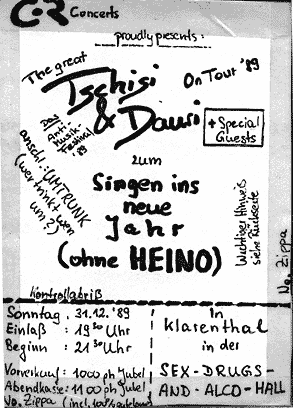 C&R Concerts
proudly presents:
The great
Tschisi
& Dauri
On Tour '89
Das
Anti-
Musik-
Festival
'89
+ Special
Guests
anschl.: UMTRUNK
(wer trinkt wen
um?)
zum
Singen ins
neue
Jahr
(ohne HEINO)
Wichtiger Hinweis
siehe Rückseite
No. Zippa
Kontrollabriß
Sonntag, 31.12.'89
Einlaß : 19³⁰ Uhr
Beginn : 21³⁰ Uhr
Vorverkauf: 1000 ph Jubel
Abendkasse: 1100 ph Jubel
No. Zippa (incl. 100%
In
Klarenthal
in der
SEX-DRUGS-
AND-ALCO-HALL